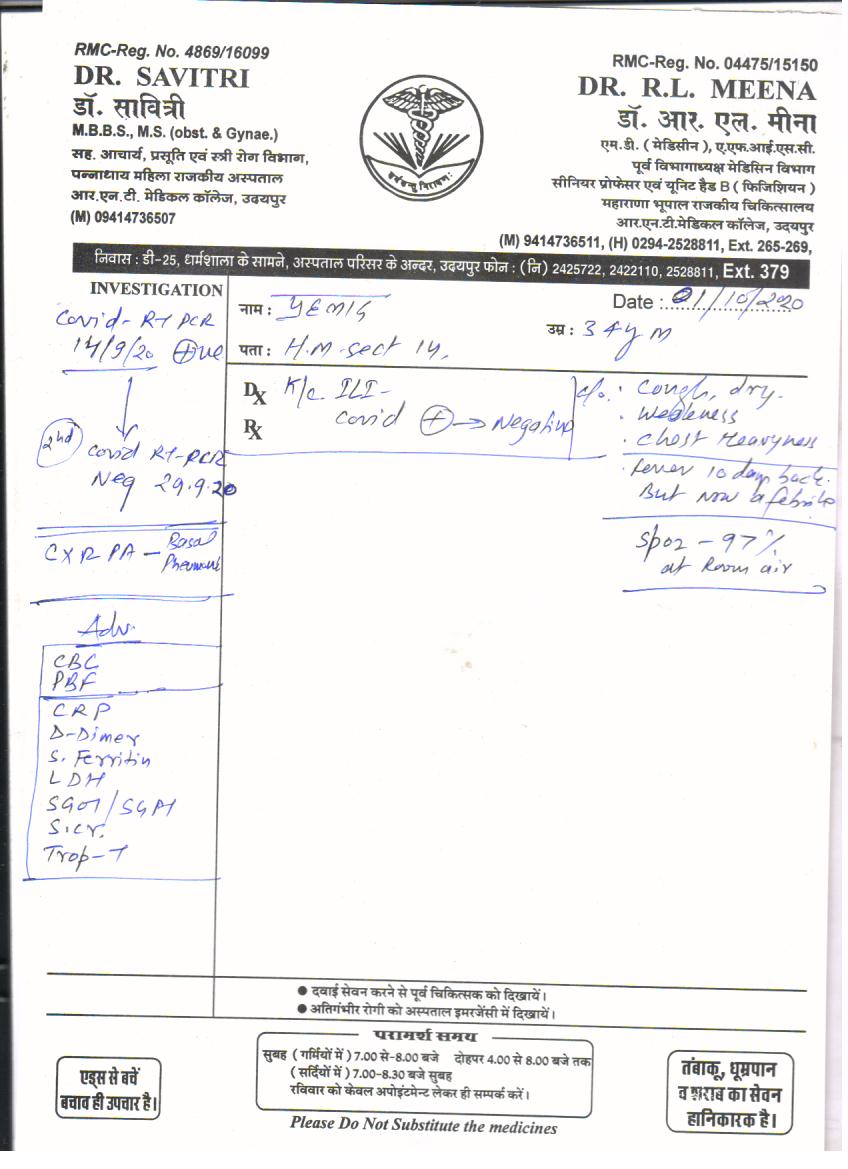 RMC-Reg. No. 4869/16099
DR. SAVITRI
डॉ. सावित्री
M.B.B.S., M.S. (obst. & Gynae.)
सह. आचार्य, प्रसूति एवं स्त्री रोग विभाग,
पन्नाधाय महिला राजकीय अस्पताल
आर.एन.टी. मेडिकल कॉलेज, उदयपुर
(M) 09414736507
RMC-Reg. No. 04475/15150
DR. R.L. MEENA
डॉ. आर. एल. मीना
एम.डी. ( मेडिसीन ), ए.एफ.आई.एस.सी.
पूर्व विभागाध्यक्ष मेडिसिन विभाग
सीनियर प्रोफेसर एवं यूनिट हैड B ( फिजिशियन )
महाराणा भूपाल राजकीय चिकित्सालय
आर.एन.टी.मेडिकल कॉलेज, उदयपुर
(M) 9414736511, (H) 0294-2528811, Ext. 265-269,
निवास : डी-25, धर्मशाला के सामने, अस्पताल परिसर के अन्दर, उदयपुर फोन : (नि) 2425722, 2422110, 2528811, Ext. 379
INVESTIGATION
Covid-RT PCR
14/9/20 +ve
2nd
Covid RT-PCR
Neg 29.9.20
CXR PA - Basal
Adv.
CBC
PBF
CRP
D-Dimer
S. Ferritin
LDH
SGOT/SGPT
S.Cr.
Trop-T
नाम :
Date : 01/10/2020
उम्र : 34 y M
पता : H.M. sect 14,
Dx K/c ILI-
Covid + → Negative
Rx
c/o. : Cough, dry.
. Weakness
. Chest Heavyness
. Fever 10 days back.
But now afebrile
Spo2 - 97%
at Room air
● दवाई सेवन करने से पूर्व चिकित्सक को दिखायें।
● अतिगंभीर रोगी को अस्पताल इमरजेंसी में दिखायें।
परामर्श समय
सुबह ( गर्मियों में ) 7.00 से-8.00 बजे दोहपर 4.00 से 8.00 बजे तक
( सर्दियों में ) 7.00-8.30 बजे सुबह
रविवार को केवल अपोइंटमेन्ट लेकर ही सम्पर्क करें।
Please Do Not Substitute the medicines
एड्स से बचें
बचाव ही उपचार है।
तंबाकू, धूम्रपान
व शराब का सेवन
हानिकारक है।